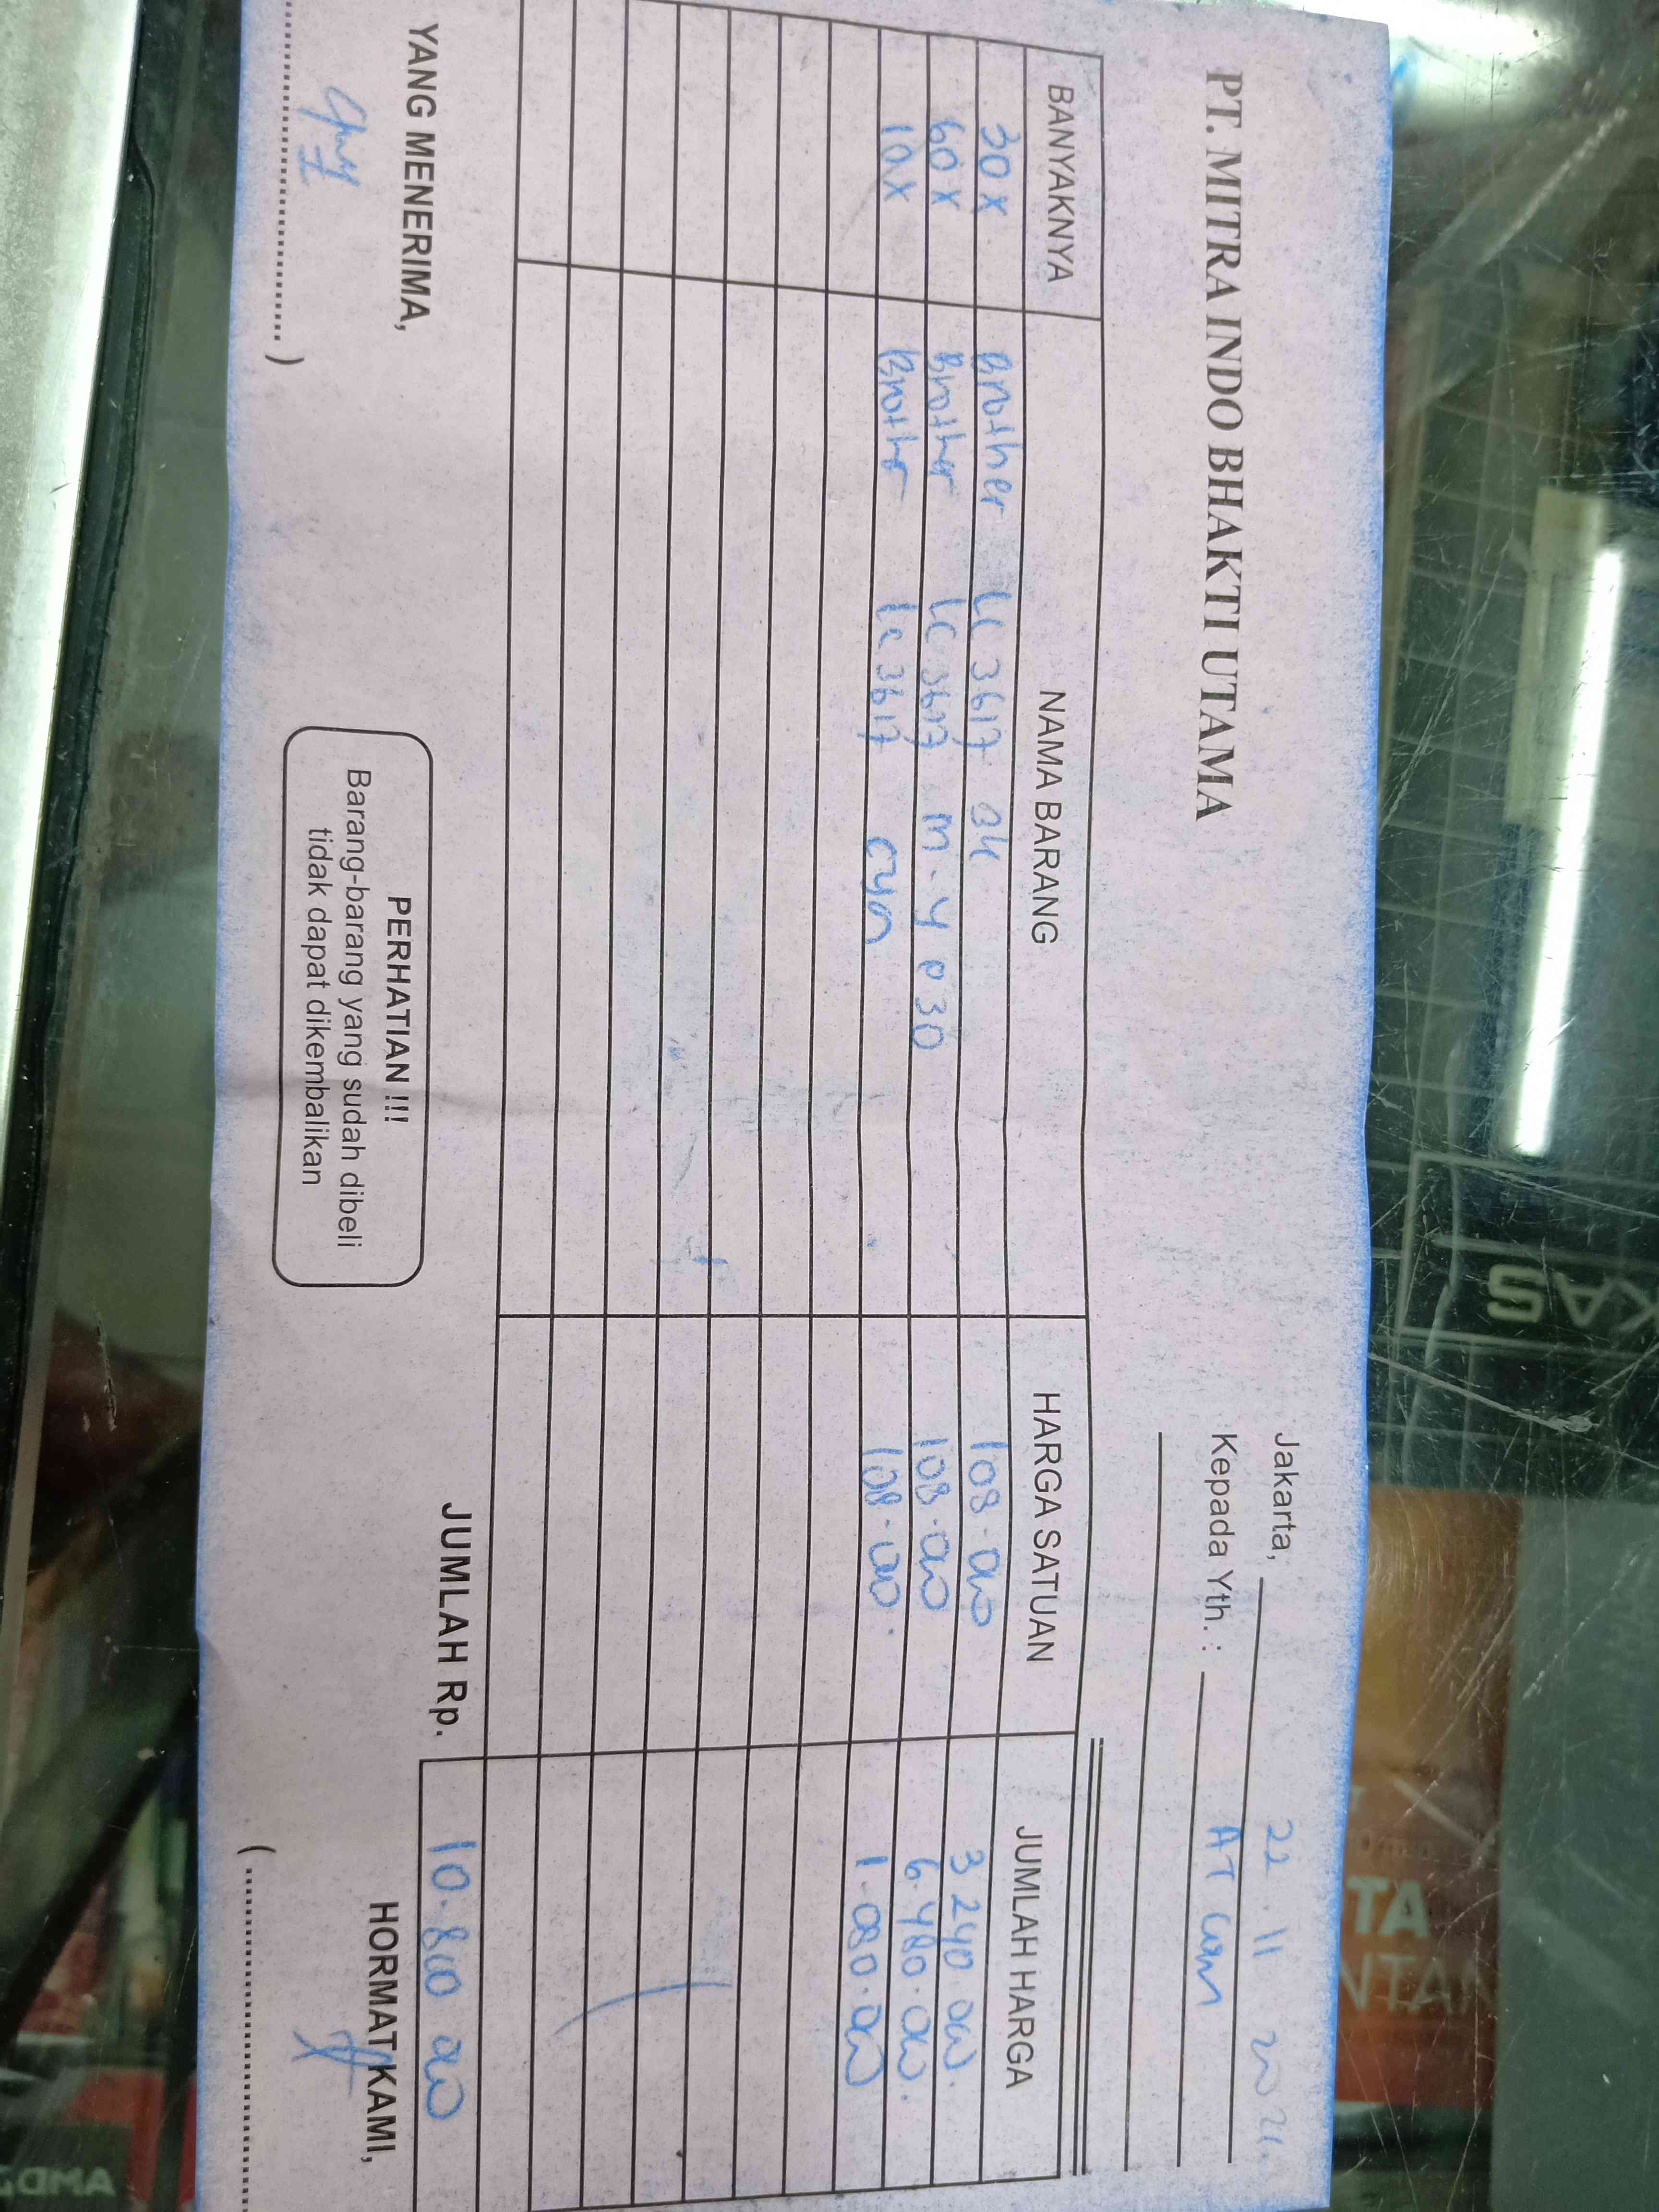 PT. MITRA INDO BHAKTI UTAMA
Jakarta, 22 . 11 20
Kepada Yth. : AT Com
BANYAKNYA NAMA BARANG HARGA SATUAN JUMLAH HARGA
30 x Brother LC 3617 BK 108.000 3 240.000.
60 x Brother LC 3617 M. Y @ 30 108.000 6.480.000.
10 x Brothr Lc 3617 cyn 108.000. 1.080.000
JUMLAH Rp. 10.800 000
YANG MENERIMA,
PERHATIAN !!!
Barang-barang yang sudah dibeli
tidak dapat dikembalikan
HORMAT KAMI,
KAS
TA
NTAN